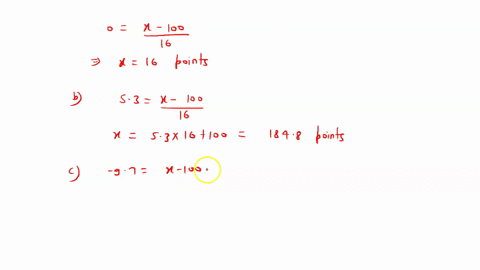 0 = x - 100 / 16
⇒ x = 16 points
b) 5.3 = x - 100 / 16
x = 5.3 x 16 + 100 = 184.8 points
c) -9.7 = x - 100